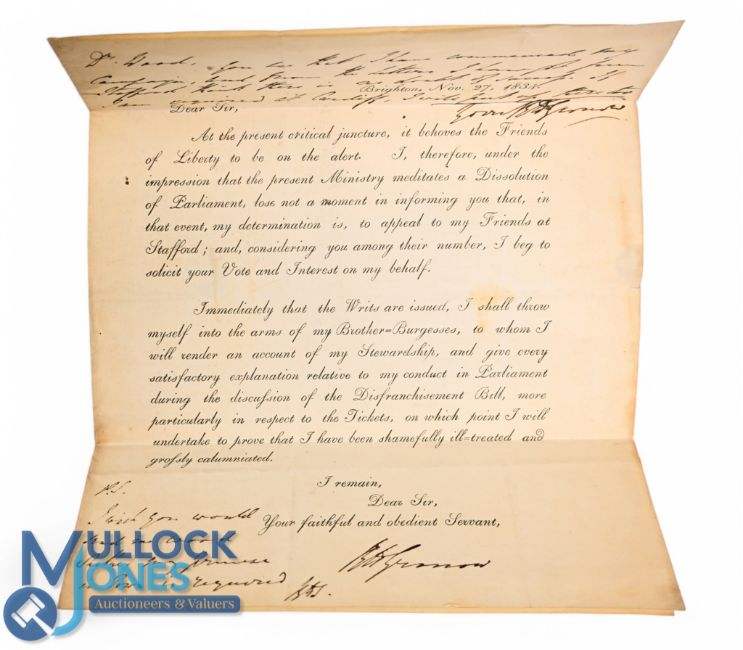 Dr. Wood, you see that I have commenced my
Campaign, and from the letters I have had from
Stafford think there is no doubt of
Brighton, Nov. 27, 1834.
Dear Sir,
At the present critical juncture, it behoves the Friends
of Liberty to be on the alert. I, therefore, under the
impression that the present Ministry meditates a Dissolution
of Parliament, lose not a moment in informing you that, in
that event, my determination is, to appeal to my Friends at
Stafford; and, considering you among their number, I beg to
solicit your Vote and Interest on my behalf.
Immediately that the Writs are issued, I shall throw
myself into the arms of my Brother=Burgesses, to whom I
will render an account of my Stewardship, and give every
satisfactory explanation relative to my conduct in Parliament
during the discufsion of the Disfranchisement Bill, more
particularly in respect to the Tickets, on which point I will
undertake to prove that I have been shamefully ill=treated and
grofsly calumniated.
I remain,
Dear Sir,
Your faithful and obedient Servant,
RHGronow
P.S.
I wish you would
required
MULLOCK
JONES
Auctioneers & Valuers